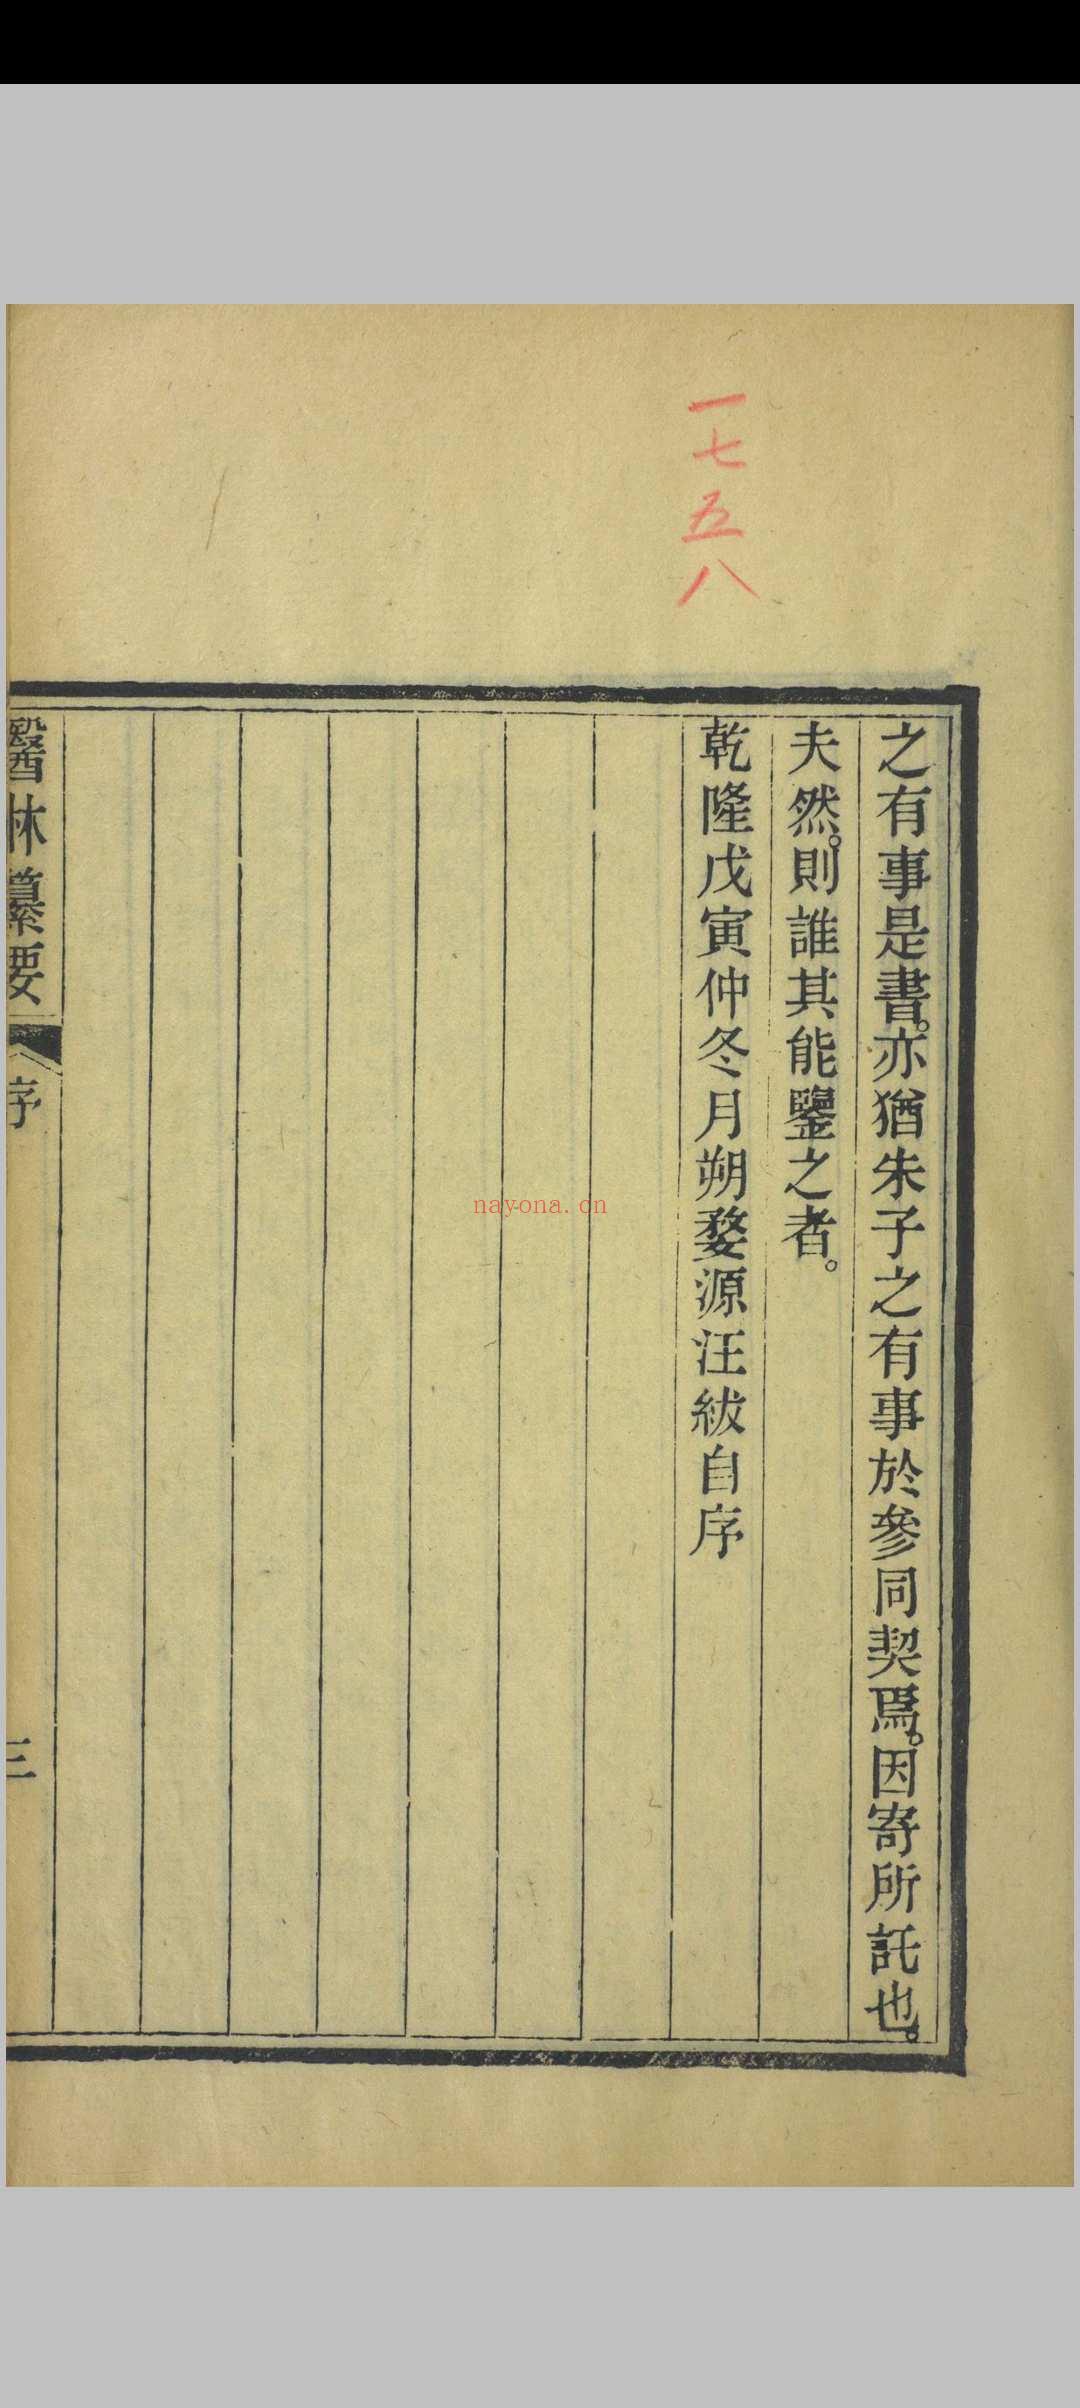 一七五八
之有事是書。亦猶朱子之有事於參同契焉。因寄所託也。
夫然。則誰其能鑒之者。
乾隆戊寅仲冬月朔婺源汪紱自序
醫林纂要
序
三
nayona.cn